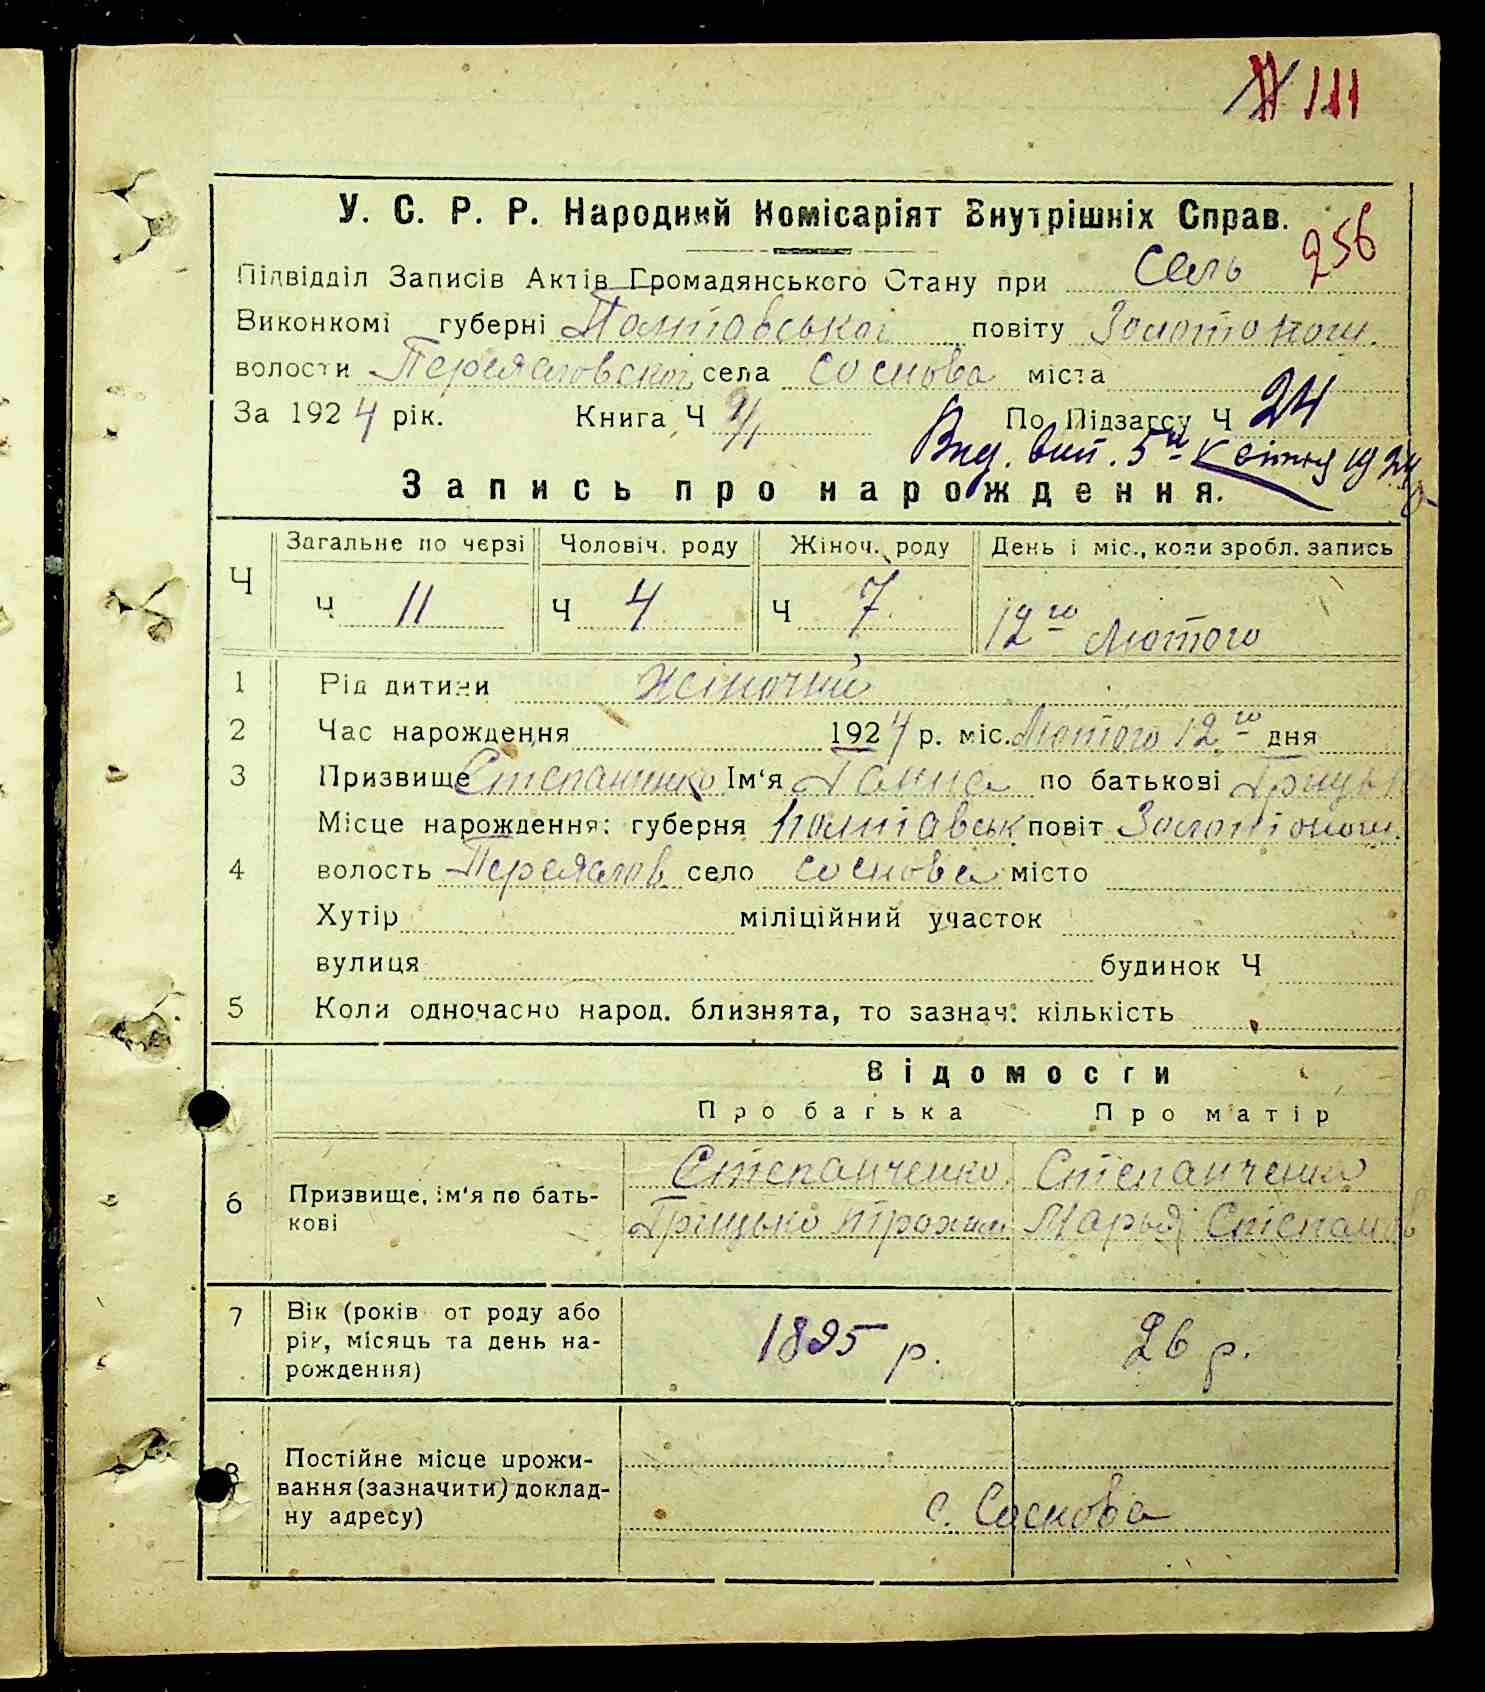 111
У. С. Р. Р. Народний Комісаріят Внутрішніх Справ.
256
Підвідділ Записів Актів Громадянського Стану при Сель
Виконкомі губерні Полтавської повіту Золотонош.
волости Переяславської села Соснова міста
За 1924 рік. Книга Ч По Підзагсу Ч 24
Вид. вип. 5го Квітня 1924
Запись про нарождення.
Ч Загальне по черзі Чоловіч. роду Жіноч. роду День і міс., коли зробл. запись
Ч 11 Ч 4 Ч 7 12го Лютого
1 Рід дитини Жіночий
2 Час нарождення 1924 р. міс. Лютого 12го дня
3 Призвище Степаненко Ім'я Ганна по батькові Грицьк
Місце нарождення: губерня Полтавськ повіт Золотонош.
4 волость Переяслов село Соснова місто
Хутір міліційний участок
вулиця будинок Ч
5 Коли одночасно народ. близнята, то зазнач. кількість
Відомости
Про батька Про матір
6 Призвище, ім'я по бать-
кові
Степанченко Степанченко
Грицько Трохим Марья Степанов
7 Вік (років от роду або
рік, місяць та день на-
рождення)
1895 р. 26 р.
8 Постійне місце прожи-
вання (зазначити) доклад-
ну адресу)
с. Соснова